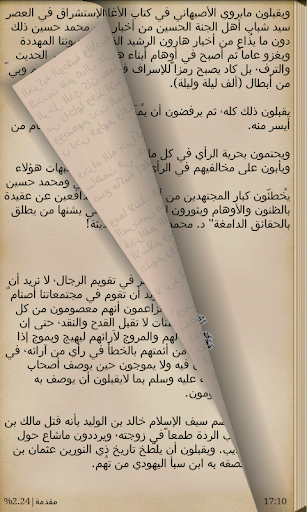 ويقبلون مايروى الأصبهاني في كتاب الأغا الإستشراق في العصر
سيد شباب أهل الجنة الحسين من أخبار محمد حسين ذلك
دون ما يذاع من أخبار هارون الرشيد الذ وننا المهددة
ويغزو عاماً ثم أصبح في أوهام أبناء هذ الحديث
والترف، بل كاد يصبح رمزاً للإسراف ف م وبي
من أبطال (ألف ليلة وليلة).
يقبلون ذلك كله، ثم يرفضون أن يُقَ هام من
أيسر منه.
ويحتمون بحرية الرأي في كل ما هات هؤلاء
ويأبون على مخالفيهم في الرأي ومحمد حسين
يخطّئون كبار المجتهدين من دافعين عن عقيدة
بالظنون والأوهام ويثورون يشنها من يطلق
بالحقائق الدامغة" د. محمد ديثة!
ر في تقويم الرجال، لا نريد أن
يد أن تقوم في مجتمعاتنا أصنام
زاعمون أنهم معصومون من كل
ئات لا تقبل القدح والنقد، حتى إن
لهم والمروج لآرائهم ليهيج ويموج إذا
من أئمتهم بالخطأ في رأي من آرائه، في
فيه ولا يموجون حين يوصف أصحاب
عليه وسلم بما لايقبلون أن يوصف به
ومون.
صم سيف الإسلام خالد بن الوليد بأنه قتل مالك بن
الردة طمعاً في زوجته، ويرددون ماشاع حول
يب. ويقبلون أن يلطّخ تاريخ ذي النورين عثمان بن
لصقه به ابن سبأ اليهودي من تهم.
مقدمة | 2.24%
17:10